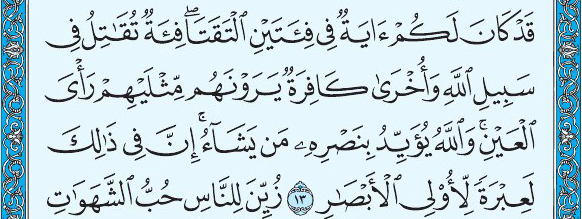 قَدْ كَانَ لَكُمْ ءَايَةٌ فِى فِئَتَيْنِ ٱلْتَقَتَا ۖ فِئَةٌ تُقَٰتِلُ فِى
سَبِيلِ ٱللَّهِ وَأُخْرَىٰ كَافِرَةٌ يَرَوْنَهُم مِّثْلَيْهِمْ رَأْىَ
ٱلْعَيْنِ ۚ وَٱللَّهُ يُؤَيِّدُ بِنَصْرِهِۦ مَن يَشَآءُ ۗ إِنَّ فِى ذَٰلِكَ
لَعِبْرَةً لِّأُو۟لِى ٱلْأَبْصَٰرِ ١٣ زُيِّنَ لِلنَّاسِ حُبُّ ٱلشَّهَوَٰتِ